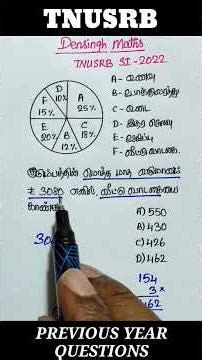 TNUSRB
Densingh Maths
TNUSRB SI-2022
D 10%
A 25%
F 15%
E 20%
B 12%
C 18%
A - உணவு
B - போக்குவரத்து
C - உடை
D - இதர செலவு
F - வீட்டு வாடகை
மொத்த மாத வருமானம்
₹ 3080 எனில், வீட்டு வாடகையை
காண்க
A) 550
B) 430
C) 426
D) 462
154
3 ×
462
PREVIOUS YEAR
QUESTIONS